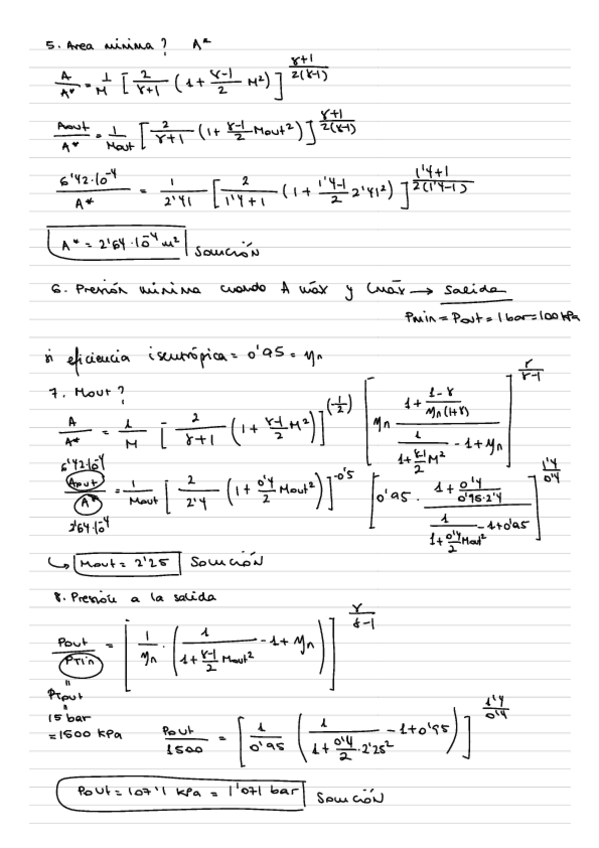 5. Area minima? A*
A/A* = 1/M [2/(γ+1) (1 + (γ-1)/2 M²)]^((γ+1)/(2(γ-1)))
Aout/A* = 1/Mout [2/(γ+1) (1 + (γ-1)/2 Mout²)]^((γ+1)/(2(γ-1)))
6'42·10⁻⁴/A* = 1/2'41 [2/(1'4+1) (1 + (1'4-1)/2 2'41²)]^((1'4+1)/(2(1'4-1)))
A* = 2'64·10⁻⁴ m² Solución
6. Presión minima cuando A máx y Cmáx → salida
Pmin = Pout = 1 bar = 100 kPa
si eficiencia isentrópica = 0'95 = ηn
7. Mout?
A/A* = 1/M [2/(γ+1) (1 + (γ-1)/2 M²)]^(-1/2) [ηn (1 + (1-γ)/(ηn(1+γ)))/(1/(1+(γ-1)/2 M²) - 1 + ηn)]^(γ/(γ-1))
6'42·10⁻⁴
Aout/A* = 1/Mout [2/2'4 (1 + 0'4/2 Mout²)]^(-0'5) [0'95 · (1 + 0'4/(0'95·2'4))/(1/(1+0'4/2 Mout²) - 1 + 0'95)]^(1'4/0'4)
2'64·10⁻⁴
↳ Mout = 2'25 Solución
8. Presión a la salida
Pout/PTin = [1/ηn · (1/(1+(γ-1)/2 Mout²) - 1 + ηn)]^(γ/(γ-1))
"
PTout
"
15 bar
= 1500 kPa
Pout/1500 = [1/0'95 (1/(1+0'4/2·2'25²) - 1 + 0'95)]^(1'4/0'4)
Pout = 107'1 kPa = 1'071 bar Solución